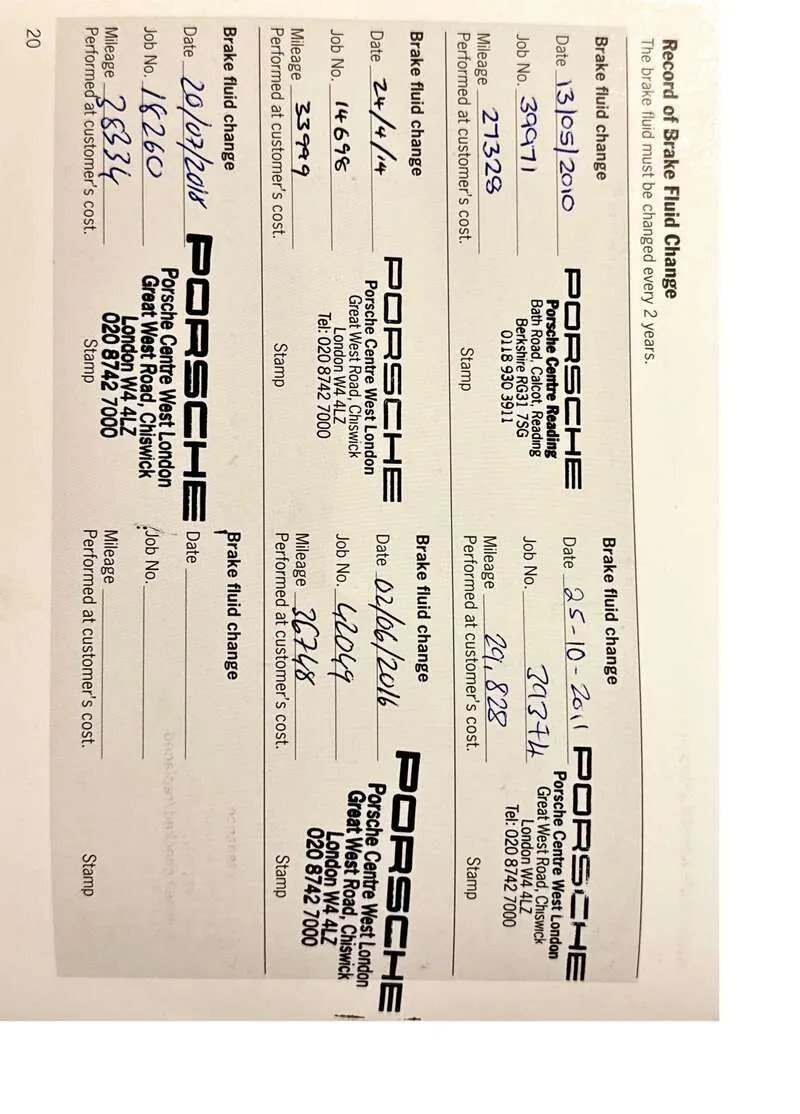 Record of Brake Fluid Change
The brake fluid must be changed every 2 years.
Brake fluid change
Date 13/05/2010
Job No. 39971
Mileage 27328
Performed at customer's cost.
PORSCHE
Porsche Centre Reading
Bath Road, Calcot, Reading
Berkshire RG31 7SG
0118 930 3911
Stamp
Brake fluid change
Date 25-10-2011
Job No. 39374
Mileage 29,828
Performed at customer's cost.
PORSCHE
Porsche Centre West London
Great West Road, Chiswick
London W4 4LZ
Tel: 020 8742 7000
Stamp
Brake fluid change
Date 24/4/14
Job No. 14698
Mileage 33999
Performed at customer's cost.
PORSCHE
Porsche Centre West London
Great West Road, Chiswick
London W4 4LZ
Tel: 020 8742 7000
Stamp
Brake fluid change
Date 02/06/2016
Job No. 42049
Mileage 36748
Performed at customer's cost.
PORSCHE
Porsche Centre West London
Great West Road, Chiswick
London W4 4LZ
020 8742 7000
Stamp
Brake fluid change
Date 20/07/2018
Job No. 18260
Mileage 38334
Performed at customer's cost.
PORSCHE
Porsche Centre West London
Great West Road, Chiswick
London W4 4LZ
020 8742 7000
Stamp
Brake fluid change
Date
Job No.
Mileage
Performed at customer's cost.
Stamp
20